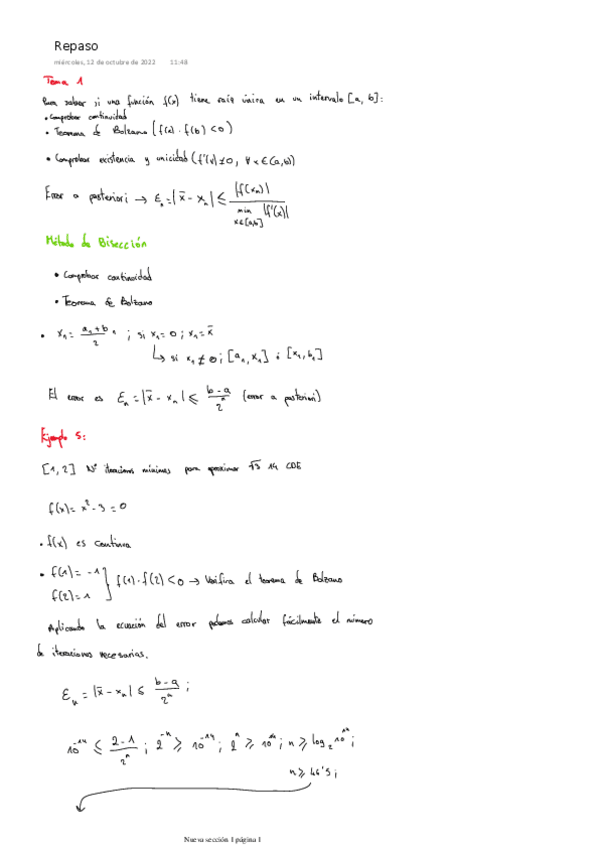 Repaso
miércoles, 12 de octubre de 2022 11:48
Tema 1
Para saber si una función f(x) tiene raíz única en un intervalo [a, b]:
• Comprobar continuidad
• Teorema de Bolzano (f(a) · f(b) < 0)
• Comprobar existencia y unicidad (f'(x) ≠ 0, ∀ x ∈ (a, b))
Error a posteriori → Eₙ = |x̄ - xₙ| ≤ |f(xₙ)| / min x∈[a,b] |f'(x)|
Método de Bisección
• Comprobar continuidad
• Teorema de Bolzano
• x₁ = (a₁ + b₁) / 2 ; si x₁ = 0 ; x₁ = x̄
↳ si x₁ ≠ 0 ; [a₁, x₁] ó [x₁, b₁]
El error es Eₙ = |x̄ - xₙ| ≤ (b - a) / 2ⁿ (error a posteriori)
Ejemplo 5:
[1, 2] Nº iteraciones mínimas para aproximar √3 14 CDE
f(x) = x² - 3 = 0
• f(x) es continua
• f(1) = -1
f(2) = 1
f(1) · f(2) < 0 → Verifica el teorema de Bolzano
Aplicando la ecuación del error podemos calcular fácilmente el número
de iteraciones necesarias.
Eₙ = |x̄ - xₙ| ≤ (b - a) / 2ⁿ ;
10⁻¹⁴ ≤ (2 - 1) / 2ⁿ ; 2⁻ⁿ ≥ 10⁻¹⁴ ; 2ⁿ ≥ 10¹⁴ ; n ≥ log₂ 10¹⁴ ;
n ≥ 46'5 ;
Nueva sección 1 página 1